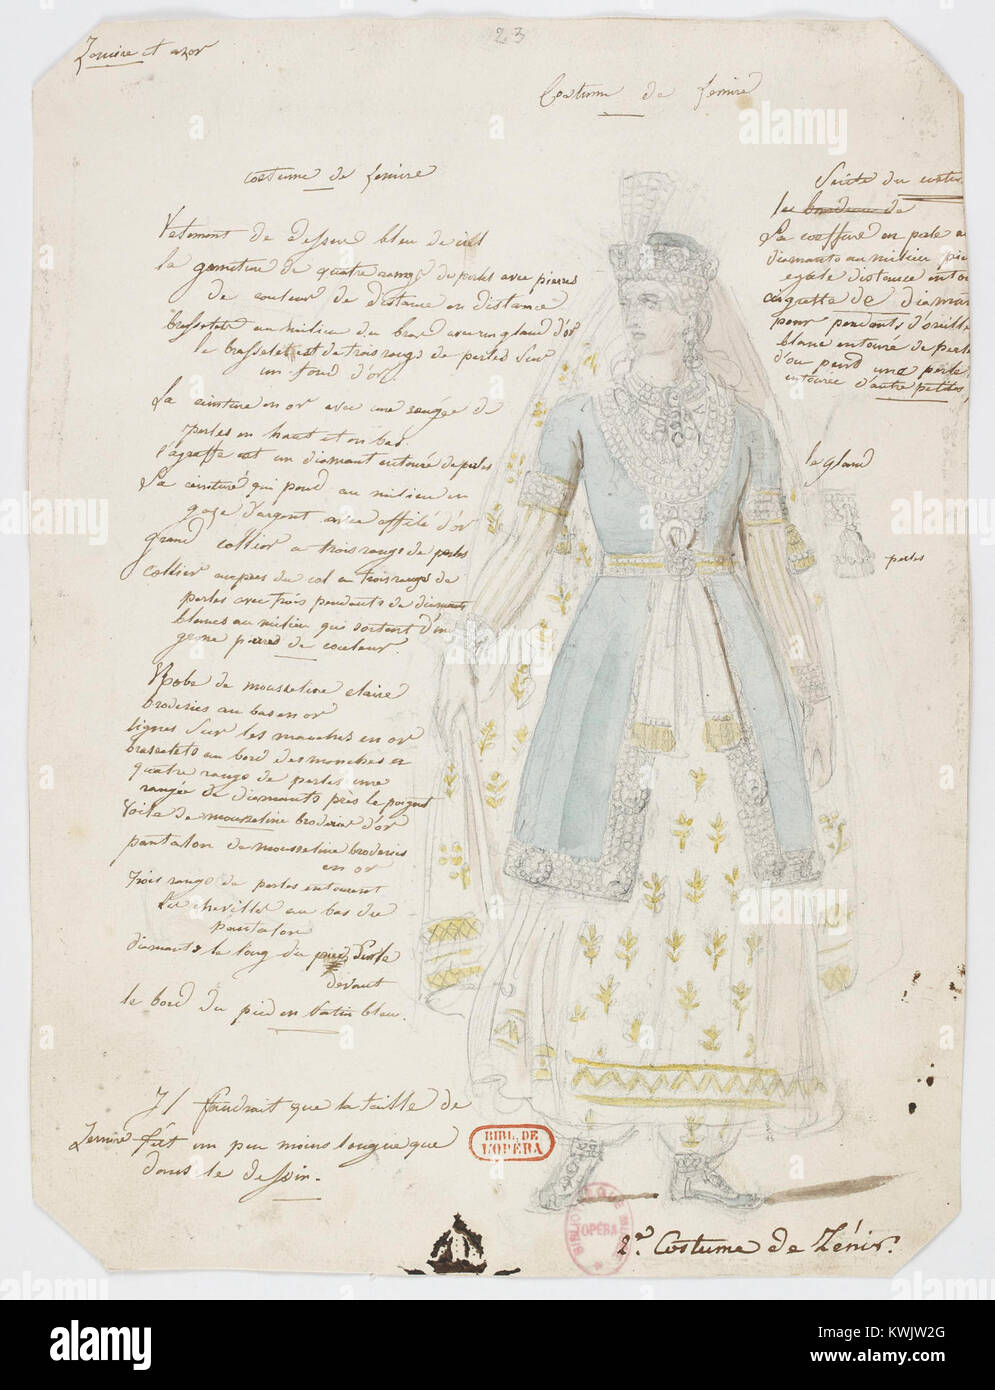 23
Zemire et azor
Costume de Zemire
costume de Zemire
Vetement de dessous bleu de ciel
la garniture de quatre rangs de perles avec pierres
de couleur de distance en distance
brasselets au milieu du bras avec un gland d'or
le brasselet est de trois rangs de perles sur
un fond d'or.
La ceinture en or avec une rangée de
perles en haut et en bas.
l'agraffe est un diamant entourée de perles
La ceinture qui pend au milieu en
gaze d'argent avec effilé d'or
grand collier a trois rangs de perles
collier aupres du col a trois rangs de
perles avec trois pendants de diamants
blancs au milieu qui sortent d'un
gros pierres de couleur.
Robe de mousseline claire
broderies au bas en or
lignes sur les manches en or
brasselets au bord des manches a
quatre rangs de perles une
rangée de diamants près le poignet
Voile de mousseline broderie d'or
pantalon de mousseline broderies
en or
trois rangs de perles entourent
la cheville au bas du
pantalon
diamants le long du pied sur le
devant
le bord du pied en satin bleu.
Il faudrait que la taille de
Zemire fût un peu moins longue que
dans le dessin.
Suite du costu
le bandeau de
La coeffure en perle a
diamants au milieu pie
egale distance entou
aigrette de diaman
pour pendants d'oreille
blanc entouré de perle
d'ou pend une perle
entourée d'autre petites
le gland
perles
BIBL. DE
L'OPÉRA
2e. Costume de Zémir.
alamy
Image ID: KWJW2G
www.alamy.com